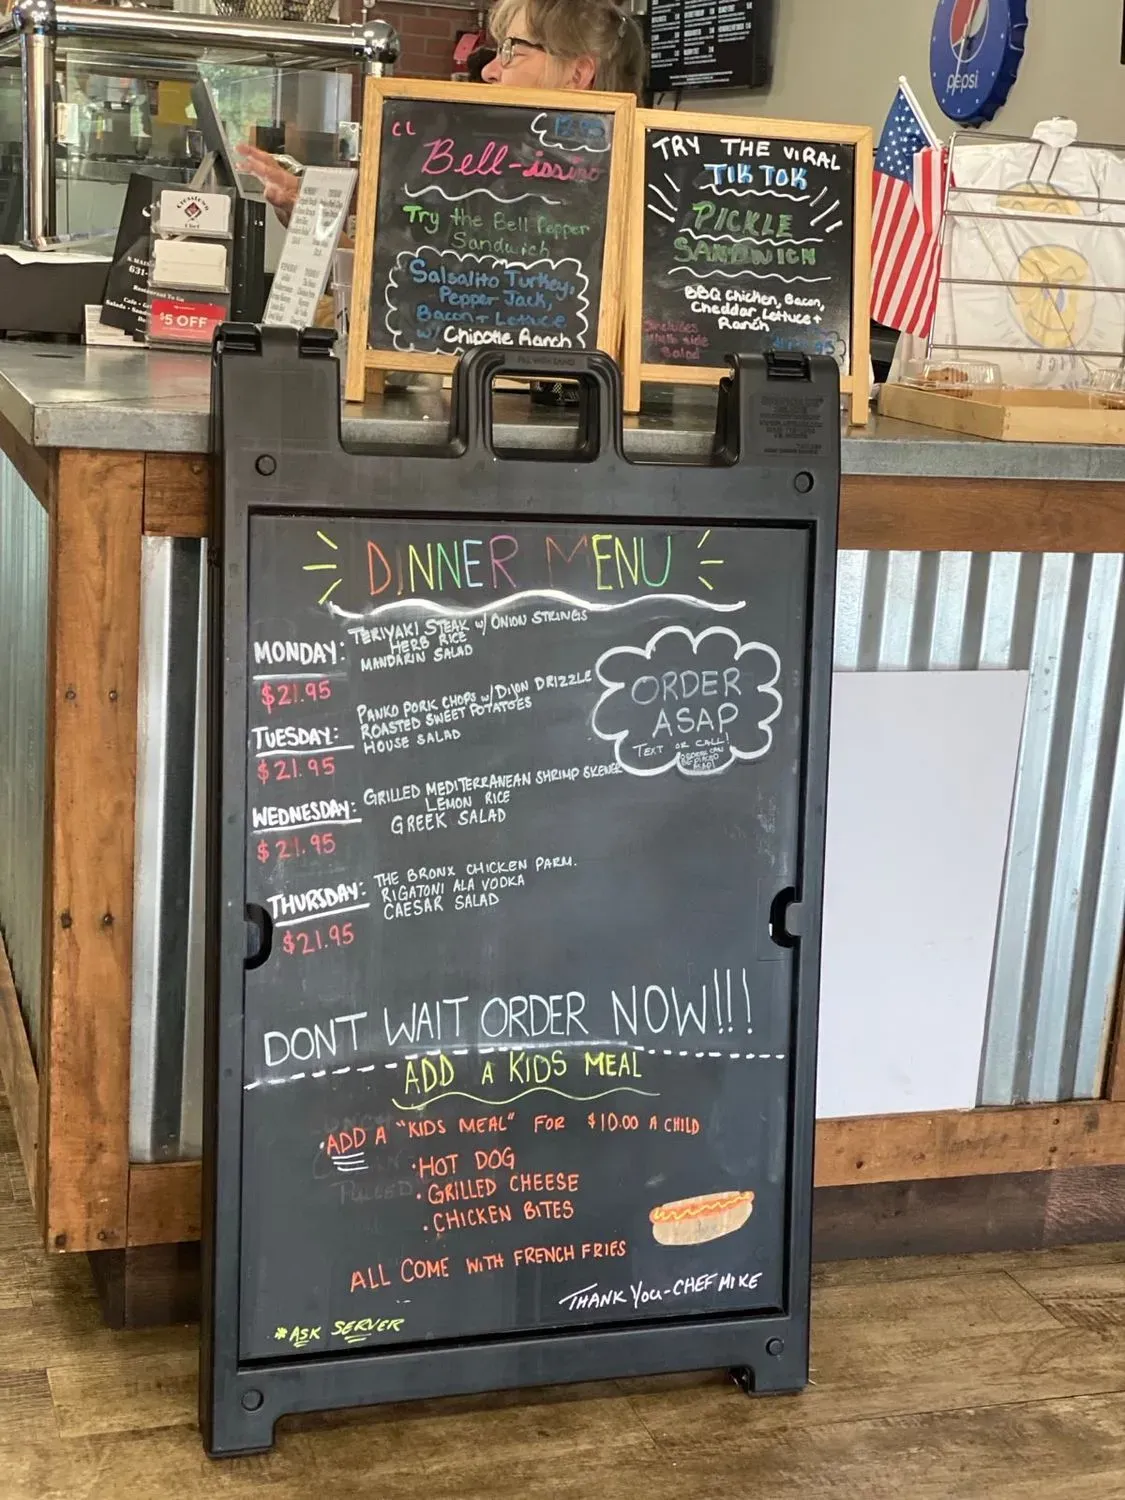 pepsi
CL
Bell-issimo
Try the Bell Pepper
Sandwich
Salsalito Turkey,
Pepper Jack,
Bacon + Lettuce
w/ Chipotle Ranch
TRY THE VIRAL
TIK TOK
PICKLE
SANDWICH
BBQ Chicken, Bacon,
Cheddar, Lettuce +
Ranch
Includes
side
Salad
Crosstown
Chef
631-
$5 OFF
DINNER MENU
MONDAY:
TERIYAKI STEAK w/ ONION STRINGS
HERB RICE
MANDARIN SALAD
$21.95
TUESDAY:
PANKO PORK CHOPS w/ DIJON DRIZZLE
ROASTED SWEET POTATOES
HOUSE SALAD
$21.95
ORDER
ASAP
TEXT OR CALL!
WEDNESDAY:
GRILLED MEDITERRANEAN SHRIMP SKEWER
LEMON RICE
GREEK SALAD
$21.95
THURSDAY:
THE BRONX CHICKEN PARM.
RIGATONI ALA VODKA
CAESAR SALAD
$21.95
DONT WAIT ORDER NOW!!!
ADD A KIDS MEAL
·ADD A "KIDS MEAL" FOR $10.00 A CHILD
·HOT DOG
·GRILLED CHEESE
·CHICKEN BITES
ALL COME WITH FRENCH FRIES
THANK YOU-CHEF MIKE
*ASK SERVER